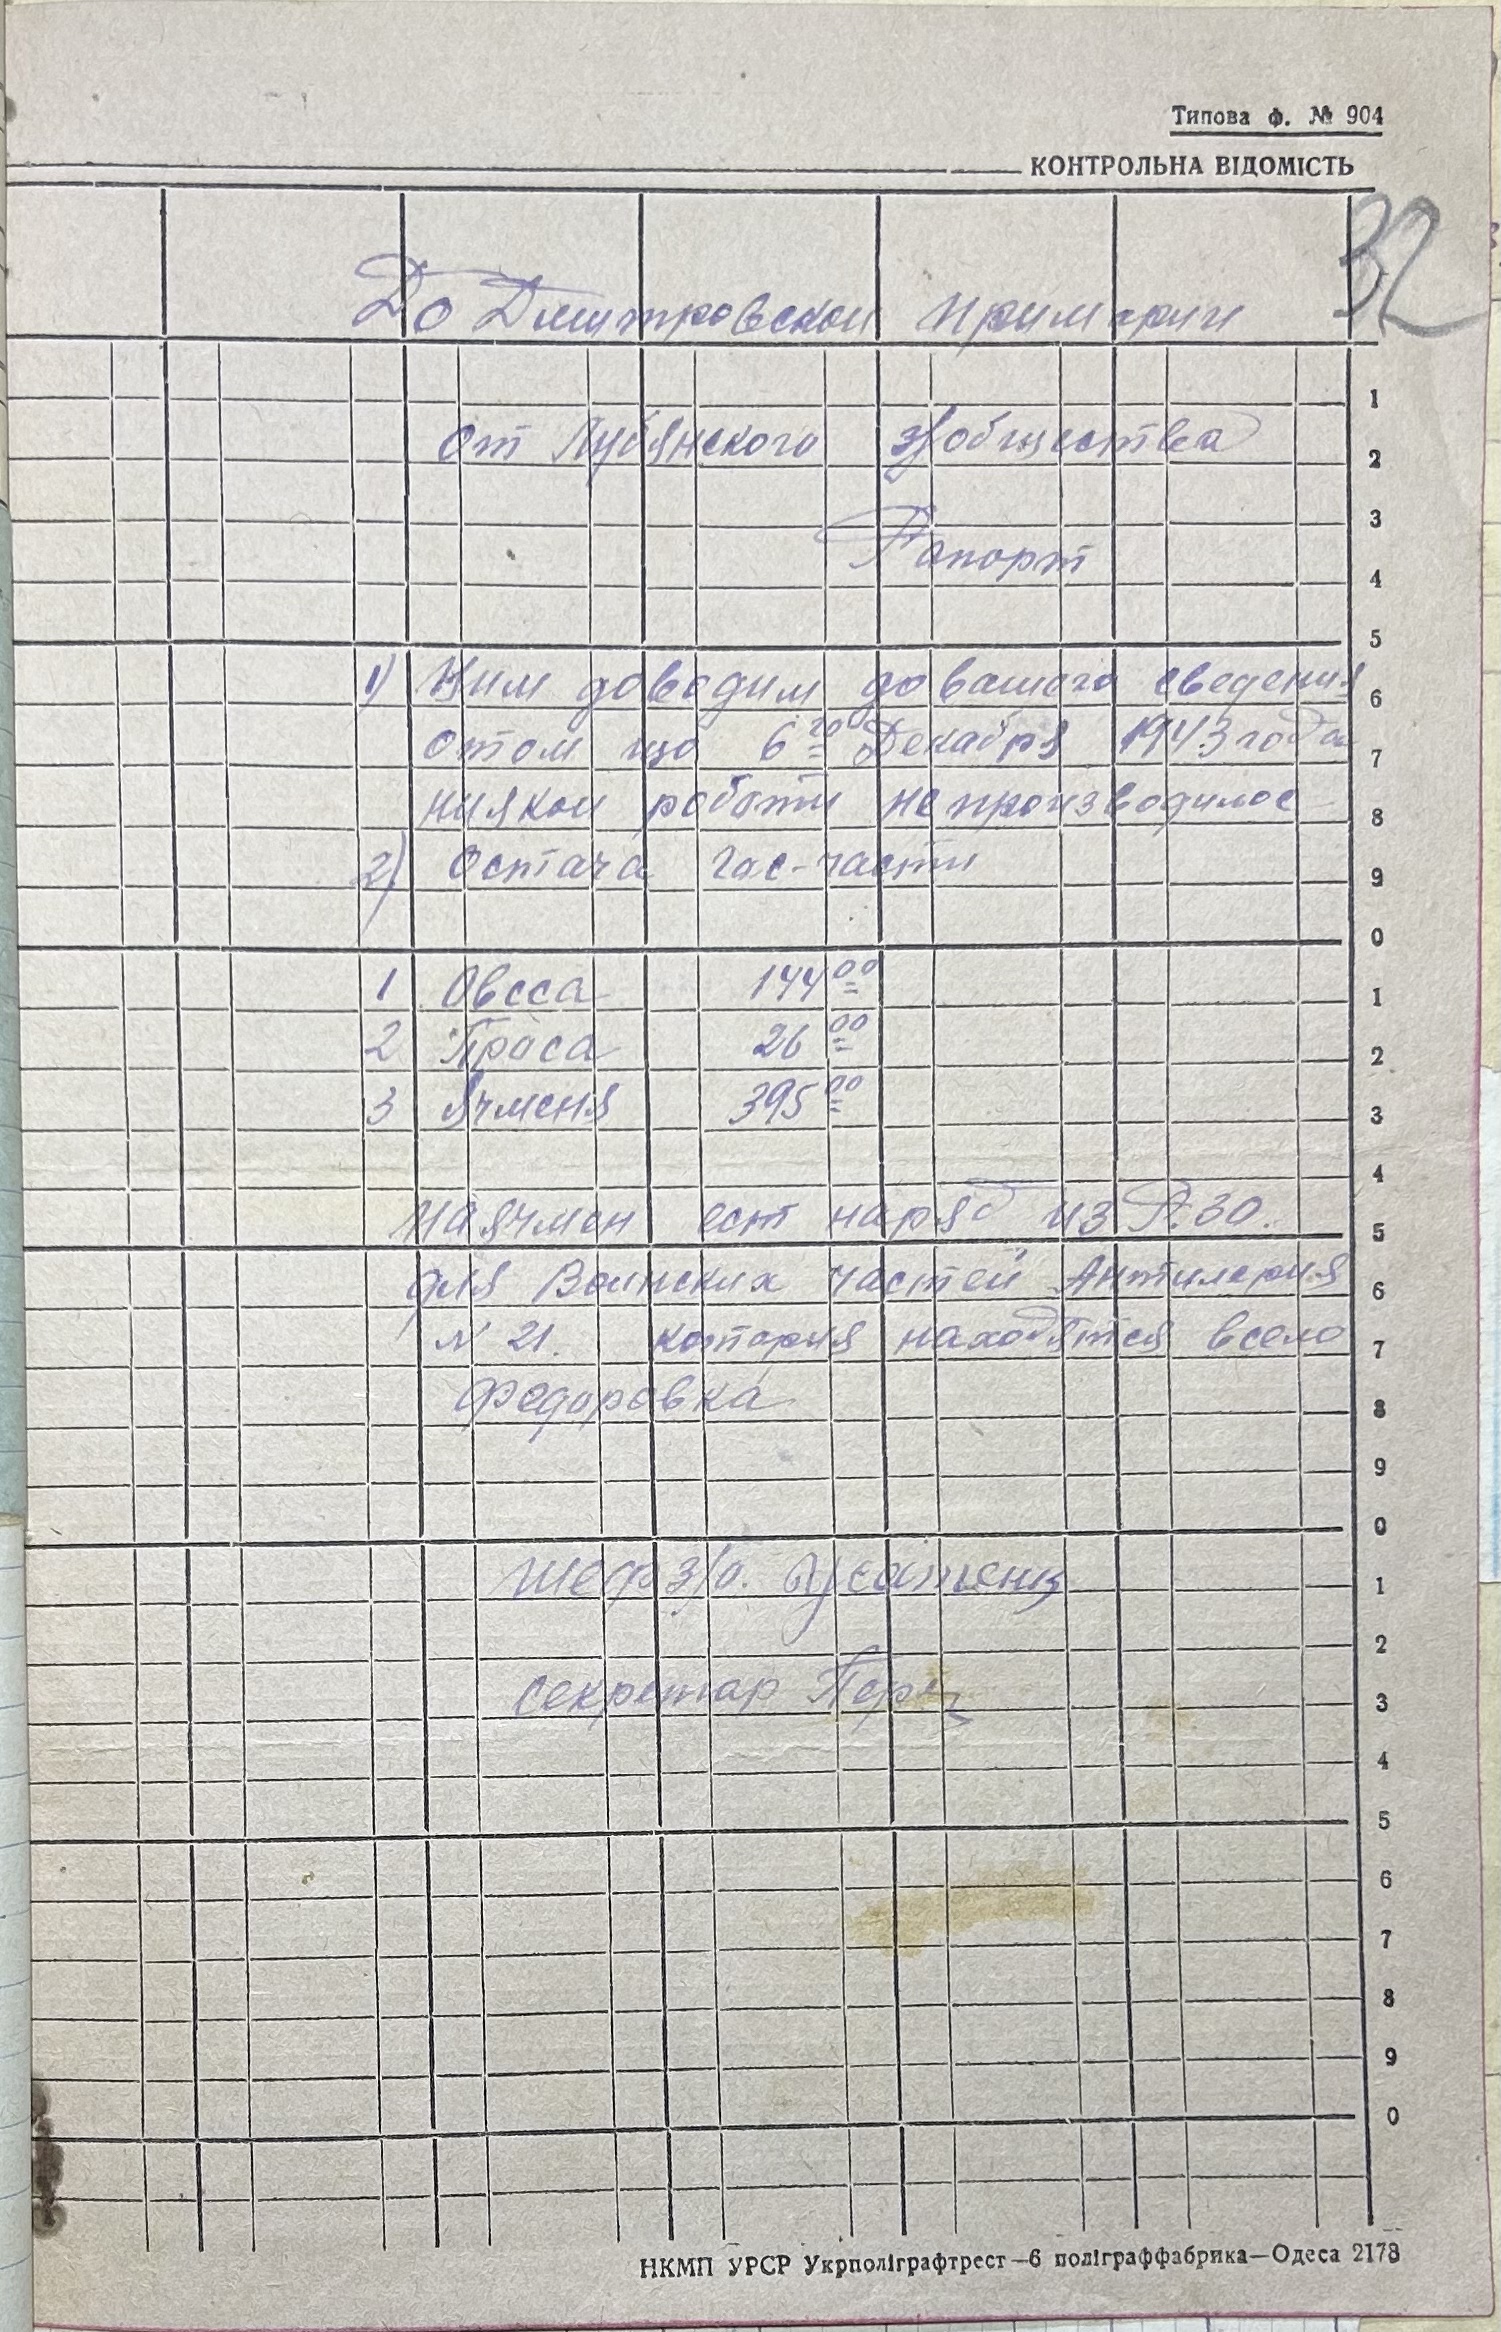 Типова ф. № 904
КОНТРОЛЬНА ВІДОМІСТЬ
32
До Дмитровской примарии
1
от Лубянского з/общества
2
3
Рапорт
4
5
1) Цим доводим до вашого сведения
6
отом що 6го Декабря 1943 года
7
ниякои роботи непроизводилос
8
2) Остача гос-части
9
0
1 Овсса 144 00
1
2 Проса 26 00
2
3 Ячменя 395 00
3
4
Наячмен ест наряд из
5
для Воинских частей Антилерия
6
N 21. котория находятся всело
7
Федоровка
8
9
0
Шеф з/о.
1
2
секретар
3
4
5
6
7
8
9
0
НКМП УРСР Укрполіграфтрест—6 поліграффабрика—Одеса 2173